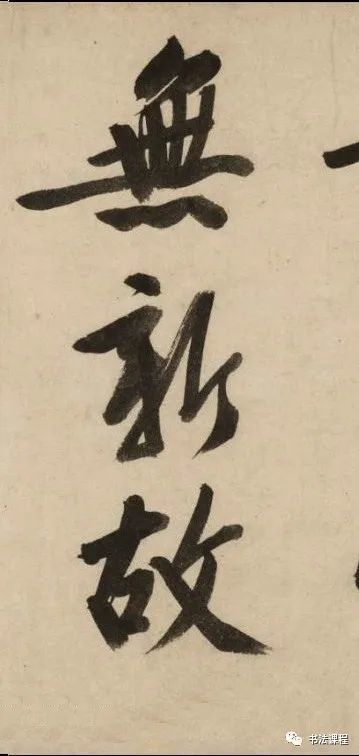 無新故
书法课程